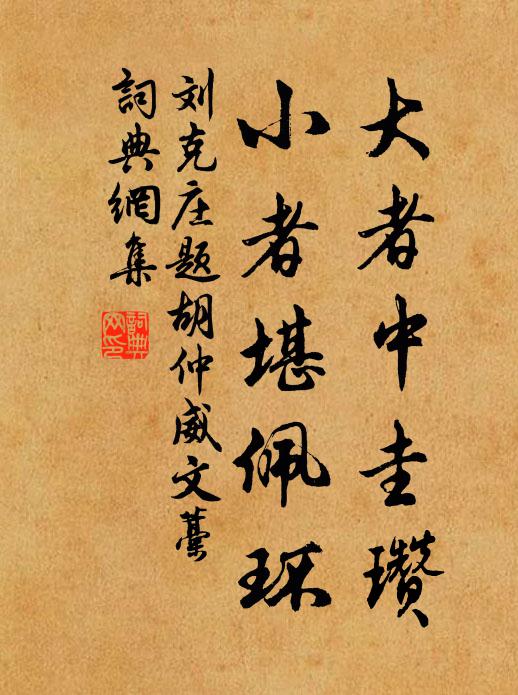 大者中圭瓚
小者堪佩环
刘克庄题胡仲威文藁
詞典網集
詞典
网印